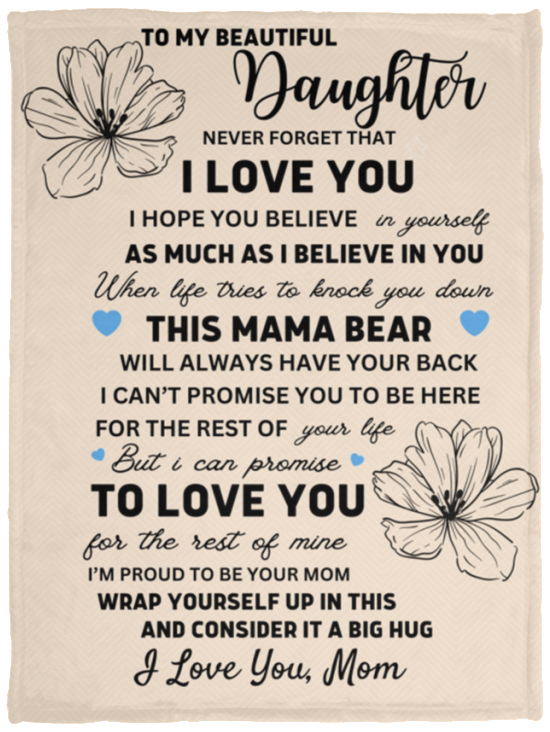 TO MY BEAUTIFUL
Daughter
NEVER FORGET THAT
I LOVE YOU
I HOPE YOU BELIEVE in yourself
AS MUCH AS I BELIEVE IN YOU
When life tries to knock you down
THIS MAMA BEAR
WILL ALWAYS HAVE YOUR BACK
I CAN'T PROMISE YOU TO BE HERE
FOR THE REST OF your life
But i can promise
TO LOVE YOU
for the rest of mine
I'M PROUD TO BE YOUR MOM
WRAP YOURSELF UP IN THIS
AND CONSIDER IT A BIG HUG
I Love You, Mom